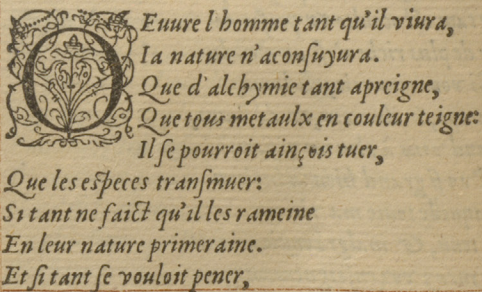 OEuure l'homme tant qu'il viura,
Ia nature n'aconſuyura.
Que d'alchymie tant apreigne,
Que tous metaulx en couleur teigne:
Il ſe pourroit ainçois tuer,
Que les eſpeces tranſmuer:
Si tant ne faict qu'il les rameine
En leur nature primeraine.
Et ſi tant ſe vouloit pener,